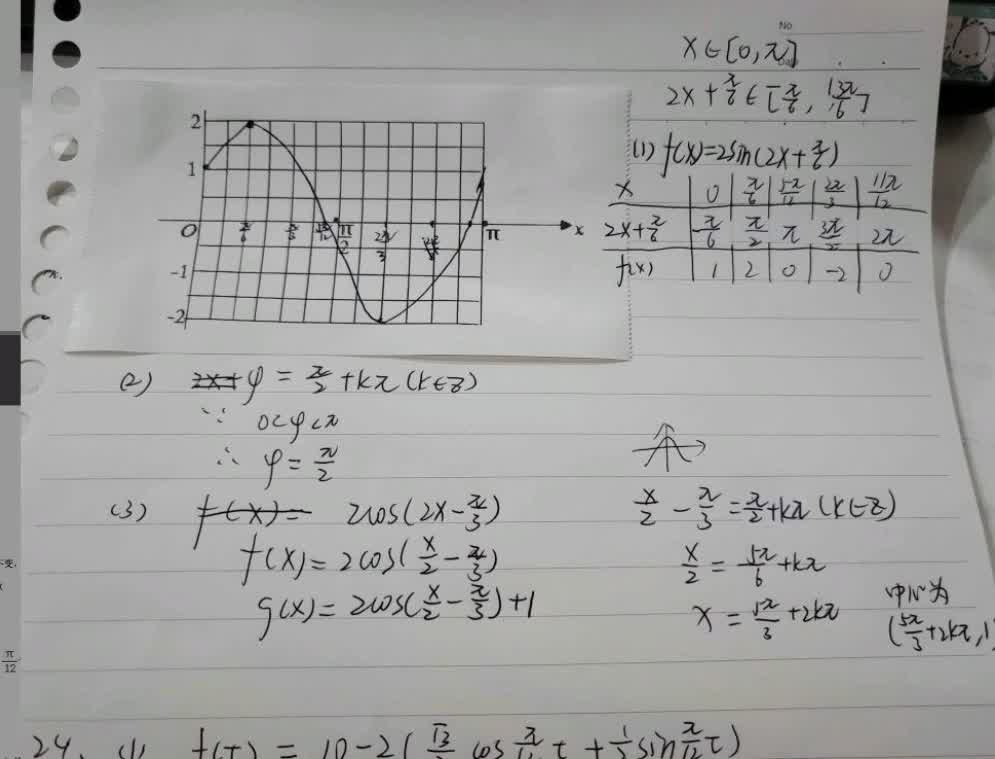 No
x∈[0,π]
2x+π/6∈[π/6, 13π/6]
(1) f(x)=2sin(2x+π/6)
x | 0 | π/6 | 5π/12 | 2π/3 | 11π/12
2x+π/6 | π/6 | π/2 | π | 3π/2 | 2π
f(x) | 1 | 2 | 0 | -2 | 0
2
1
O π/6 π/3 5π/12 π/2 2π/3 π x
-1
-2
(2) φ = π/2+kπ(k∈Z)
∵ 0<φ<π
∴ φ=π/2
(3) f(x)= 2cos(2x-π/3)
f(x)=2cos(x/2-π/3)
g(x)=2cos(x/2-π/3)+1
x/2-π/3=π/2+kπ(k∈Z)
x/2=5π/6+kπ
x=5π/3+2kπ
中心为
(5π/3+2kπ,1)
变,
π/12
24. (1) f(t)=10-2(
cos π/12 t + 1/2 sin π/12 t)